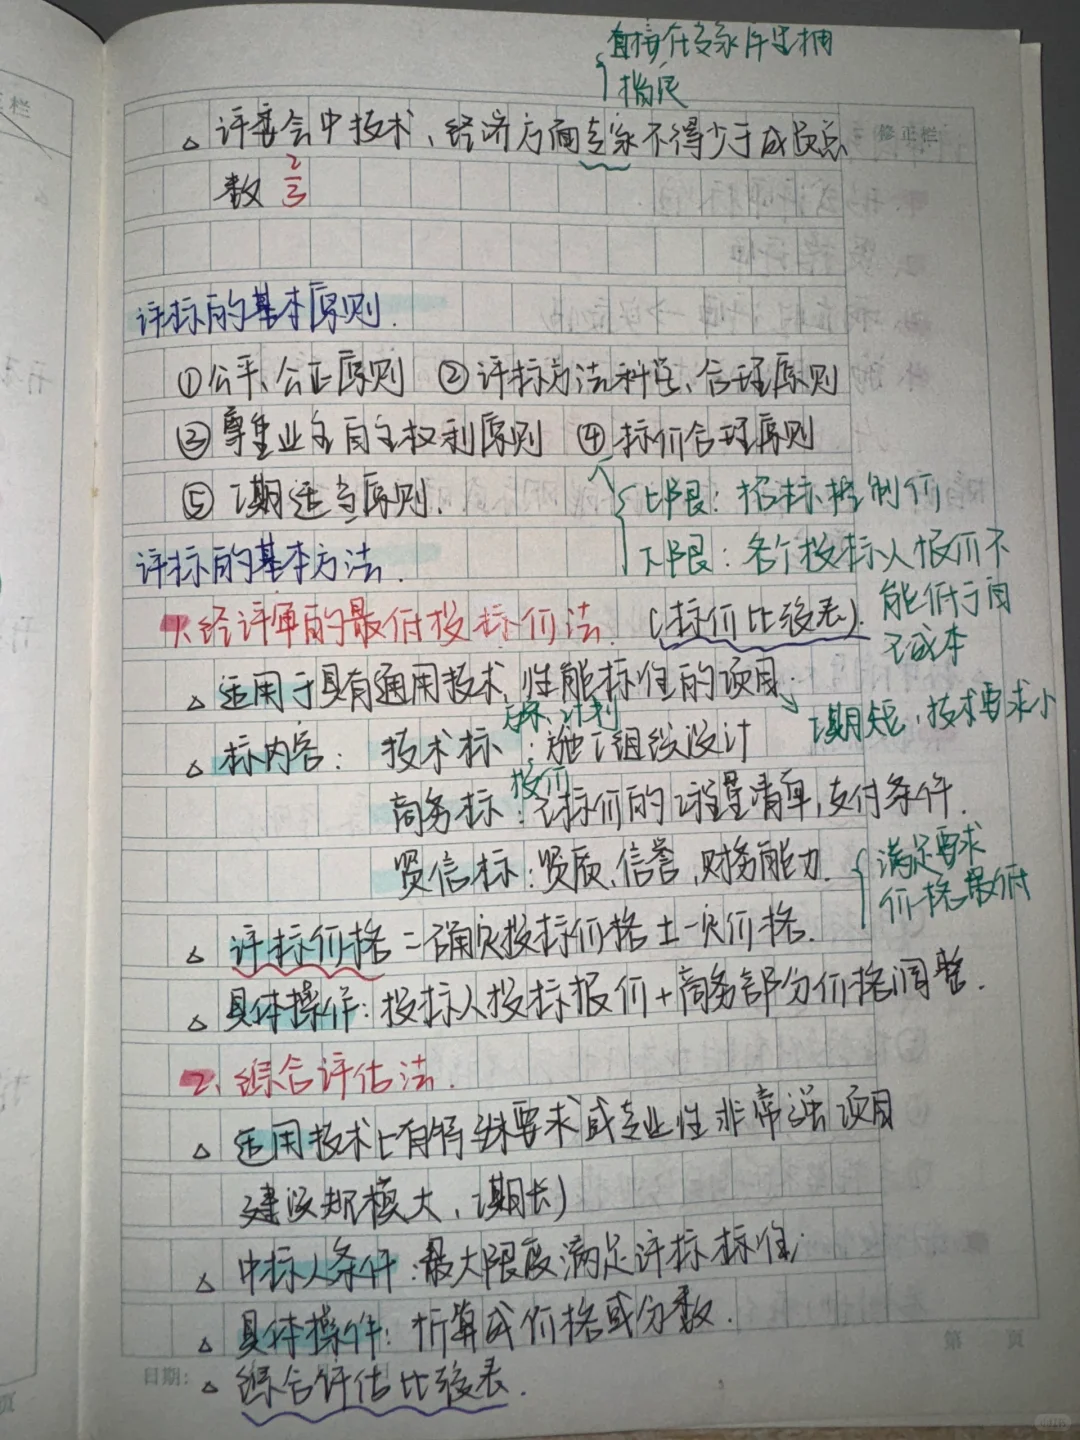 直接从专家库中抽
指定
△ 评委会中技术、经济方面专家不得少于成员总
数 2/3
修正栏
评标的基本原则.
①公平、公正原则 ②评标方法科学、合理原则
③尊重业主自主权利原则 ④标价合理原则
⑤工期适当原则.
上限：招标控制价
下限：各个投标人报价不
能低于自
己成本
评标的基本方法.
1、经评审的最低投标价法. (标价比较表).
△ 适用于具有通用技术、性能标准的项目.
工期短，技术要求小
△ 标内容： 技术标：施工组织设计
方案、计划
商务标：已标价的工程量清单,支付条件.
报价
资信标：资质、信誉,财务能力.
满足要求
价格最低
△ 评标价格=确定投标价格±一次价格.
△ 具体操作：投标人投标报价+商务部分价格调整.
2、综合评估法.
△ 适用技术上有特殊要求或专业性非常强项目
建设规模大、工期长)
△ 中标人条件：最大限度满足评标标准;
△ 具体操作：折算成价格或分数.
第 页
日期：
△ 综合评估比较表.